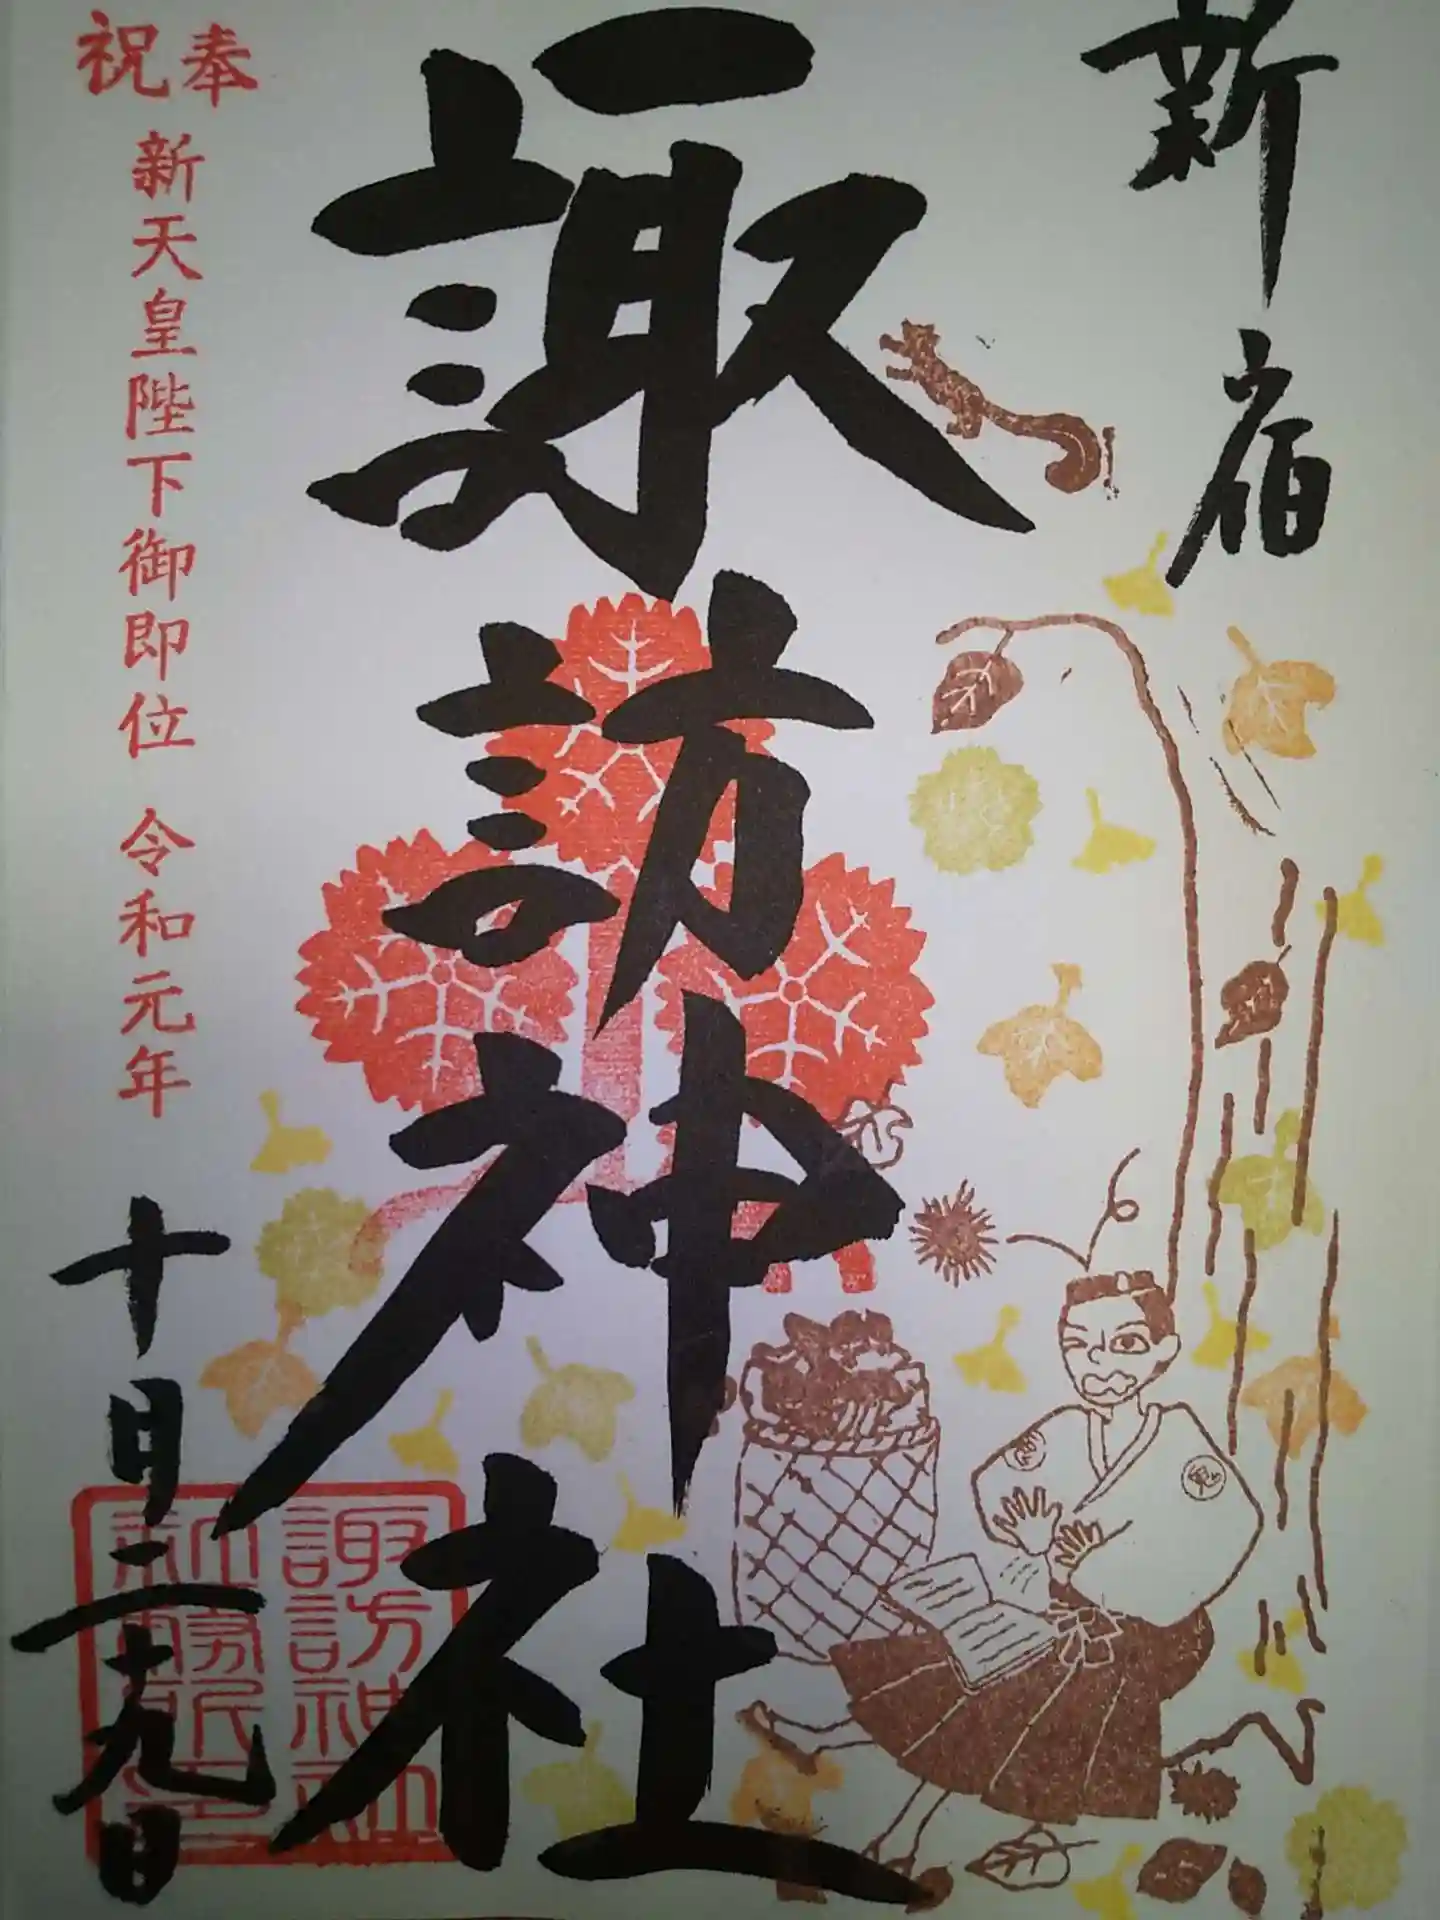 新宿
諏訪神社
奉祝
新天皇陛下御即位 令和元年
十月二十九日
諏訪神社
新宿
鬼